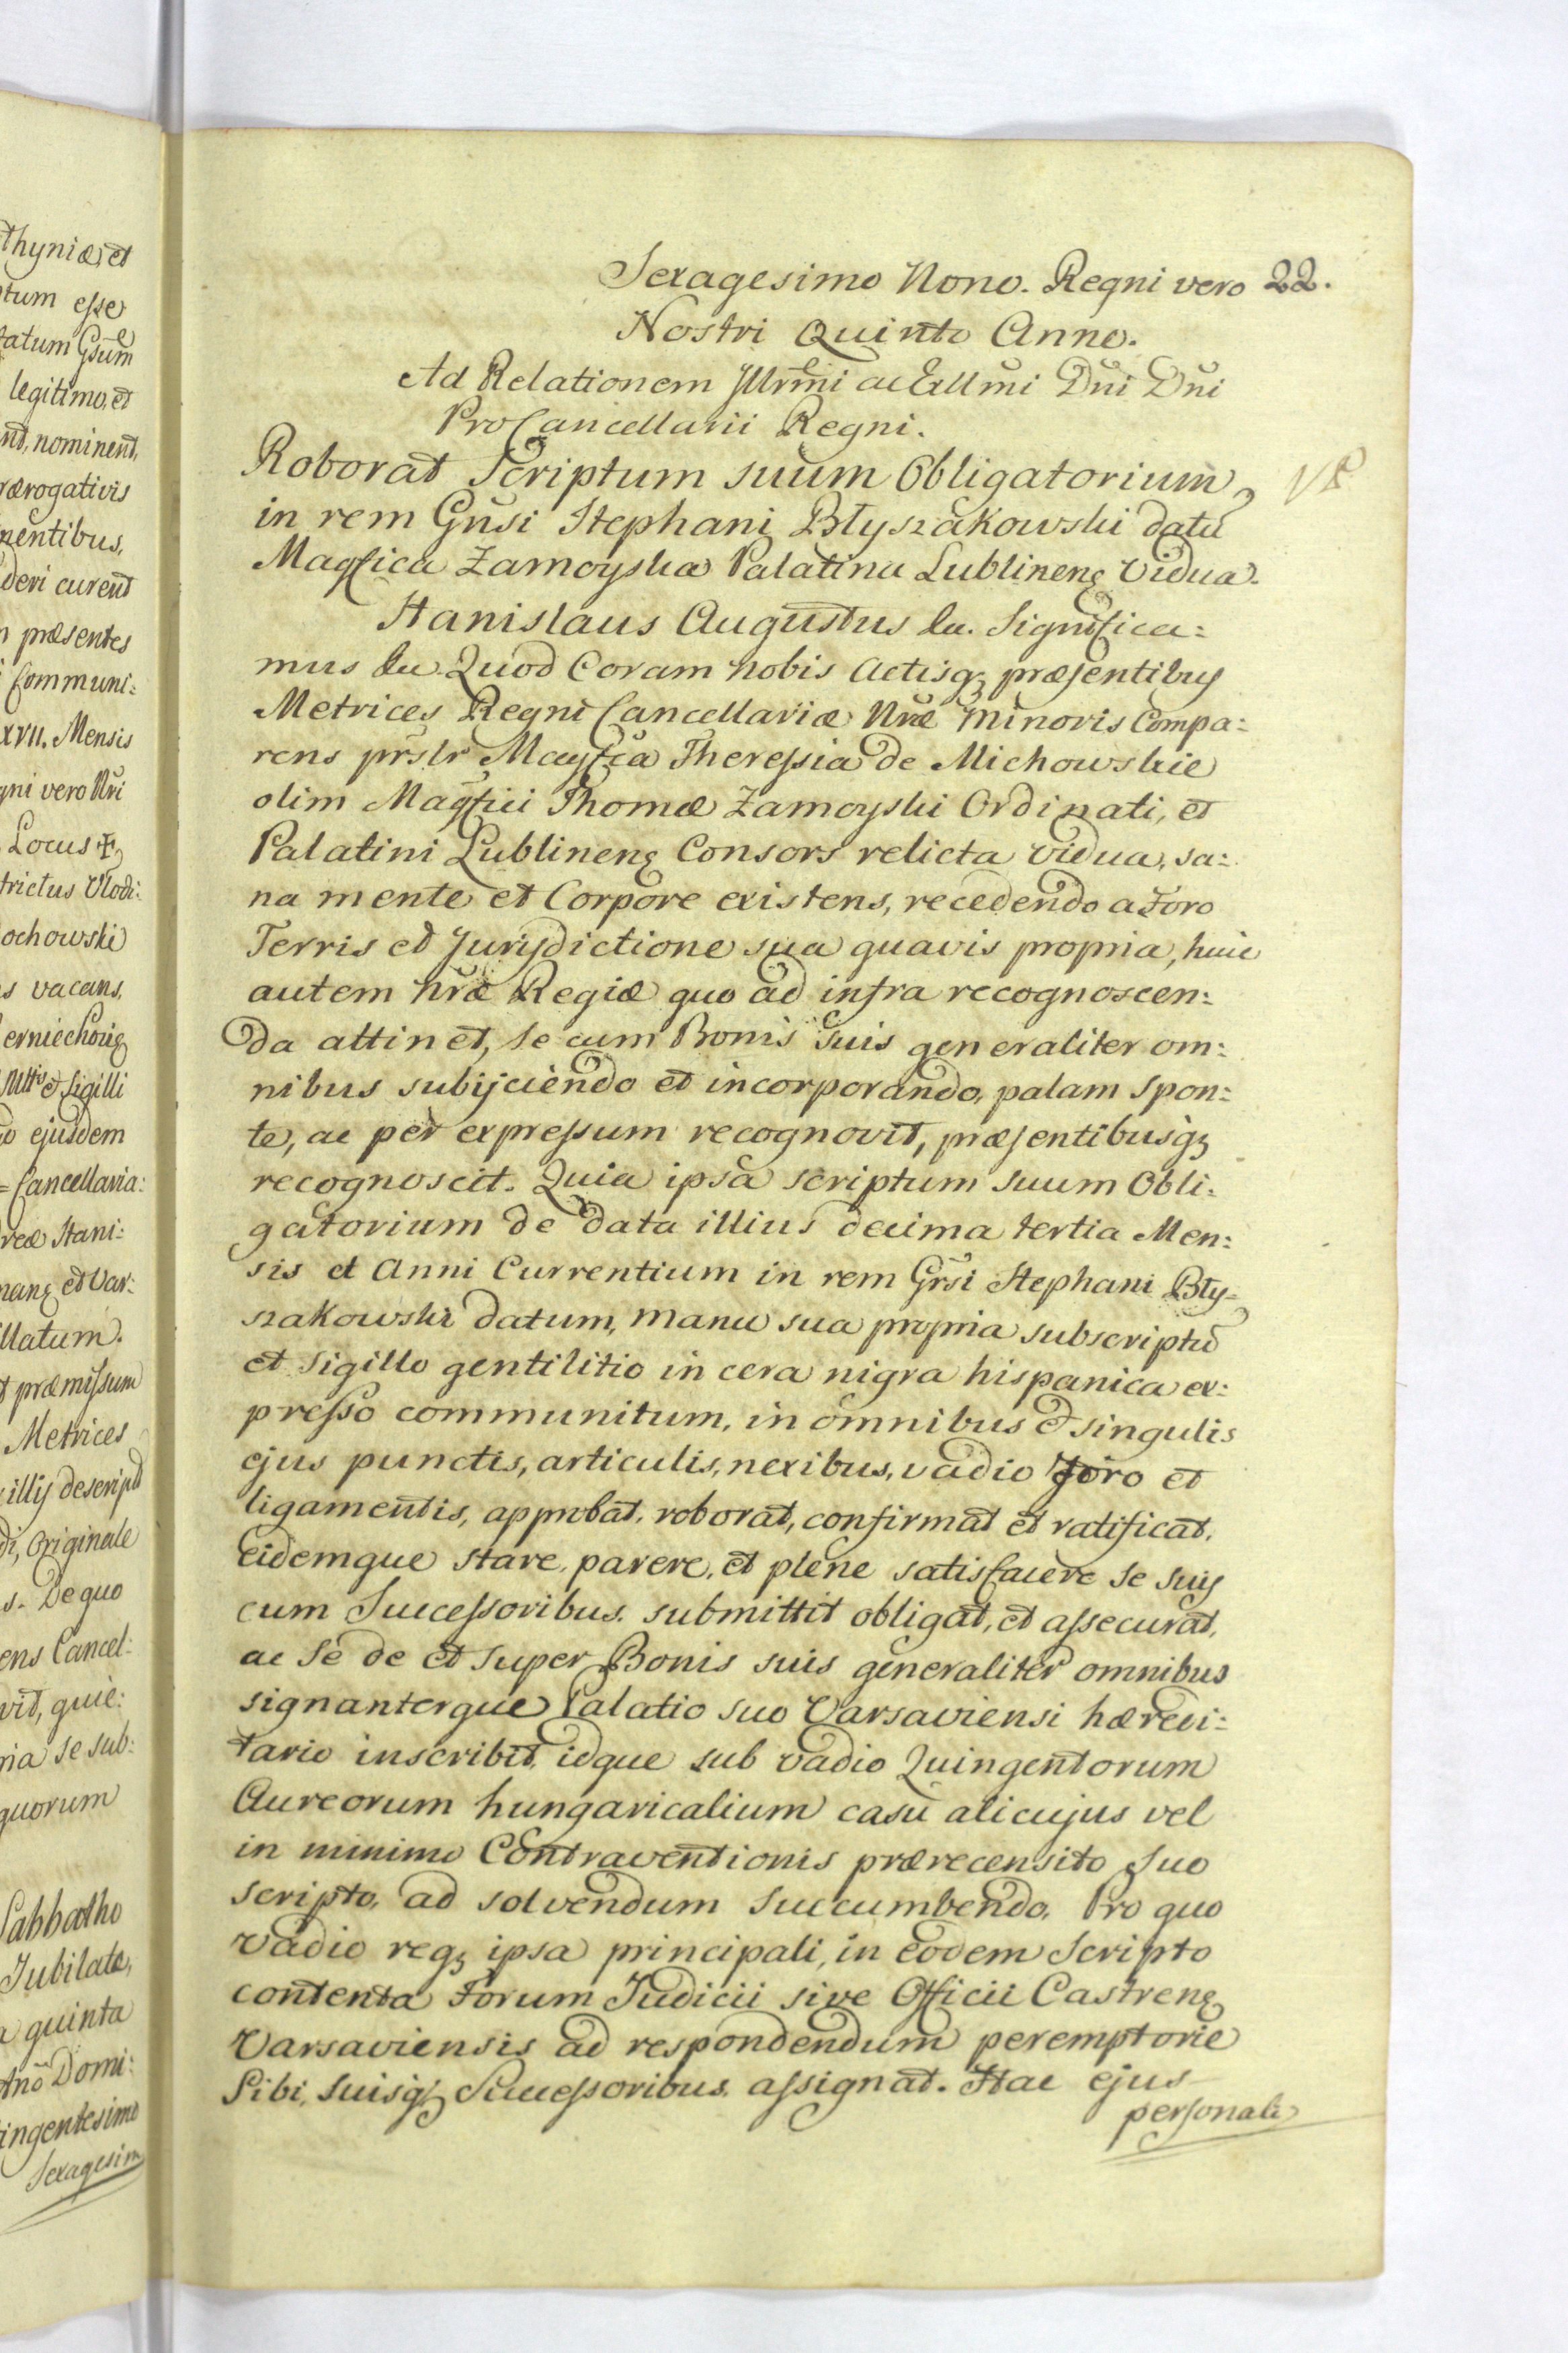 thyniæ, et
tum esse
latum Gsum
legitimo, et
nt, nominent,
rærogativis
nentibus,
deri curent
præsentes
Communi=
xvii. Mensis
gni vero Nri
Locus ✠
trictus Vlodi:
ochowski
s vacans,
ejusdem
Cancellaria:
Stani:
et Var:
llatum.
præmissum
Metrices
illis descript
di, Originale
s. De quo
ens Cancel:
vit, quie:
ria se sub:
quorum
Sabbatho
Jubilate,
a quinta
Ano Domi:
ingentesimo
Sexagesim
Sexagesimo Nono. Regni vero 22.
Nostri Quinto Anno.
Ad Relationem Illrmi ac Exllmi Dni Dni
ProCancellarii Regni.
Roborat Scriptum suum Obligatorium
in rem Gnsi Stephani Błyszakowski datū
Magfica Zamoyska Palatina Lublinenę Vidua.
Stanislaus Augustus &a. Significa=
mus &a Quod Coram nobis Actisqz præsentibus
Metrices Regni Cancellariæ Nræ Minoris Compa=
rens prslr Magfica Theressia de Michowskie
olim Magfici Thomæ Zamoyski Ordinati, et
Palatini Lublinenę Consors relicta vidua, sa=
na mente et Corpore existens, recedendo a Foro
Terris et Jurisdictione sua quavis propria, huic
autem nræ Regiæ quo ad infra recognoscen=
da attinet, se cum Bonis suis generaliter om=
nibus subijciendo et incorporando, palam spon=
te, ac per expressum recognovit, præsentibusqz
recognoscit. Quia ipsa scriptum suum Obli=
gatorium de data illius decima tertia Men=
sis et Anni Currentium in rem Grsi Stephani Bły=
szakowski datum, manu sua propria subscriptū
et sigillo gentilitio in cera nigra hispanica ex=
presso communitum, in omnibus & singulis
ejus punctis, articulis, nexibus, vadio foro et
ligamentis, approbat, roborat, confirmat et ratificat,
Eidemque stare, parere, et plene satisfacere se suis
cum Successoribus submittit obligat, et assecurat,
ac se de et super Bonis suis generaliter omnibus
signanterque Palatio suo Varsaviensi hæredi=
tario inscribit, idque sub vadio Quingentorum
Aureorum hungaricalium casu alicujus vel
in minimo Contraventionis prærecensito suo
scripto, ad solvendum succumbendo. Pro quo
vadio reqz ipsa principali, in eodem Scripto
contenta Forum Judicii sive Officii Castrenę
Varsaviensis ad respondendum peremptorie
Sibi, suisqz Successoribus assignat. Hac ejus
personali